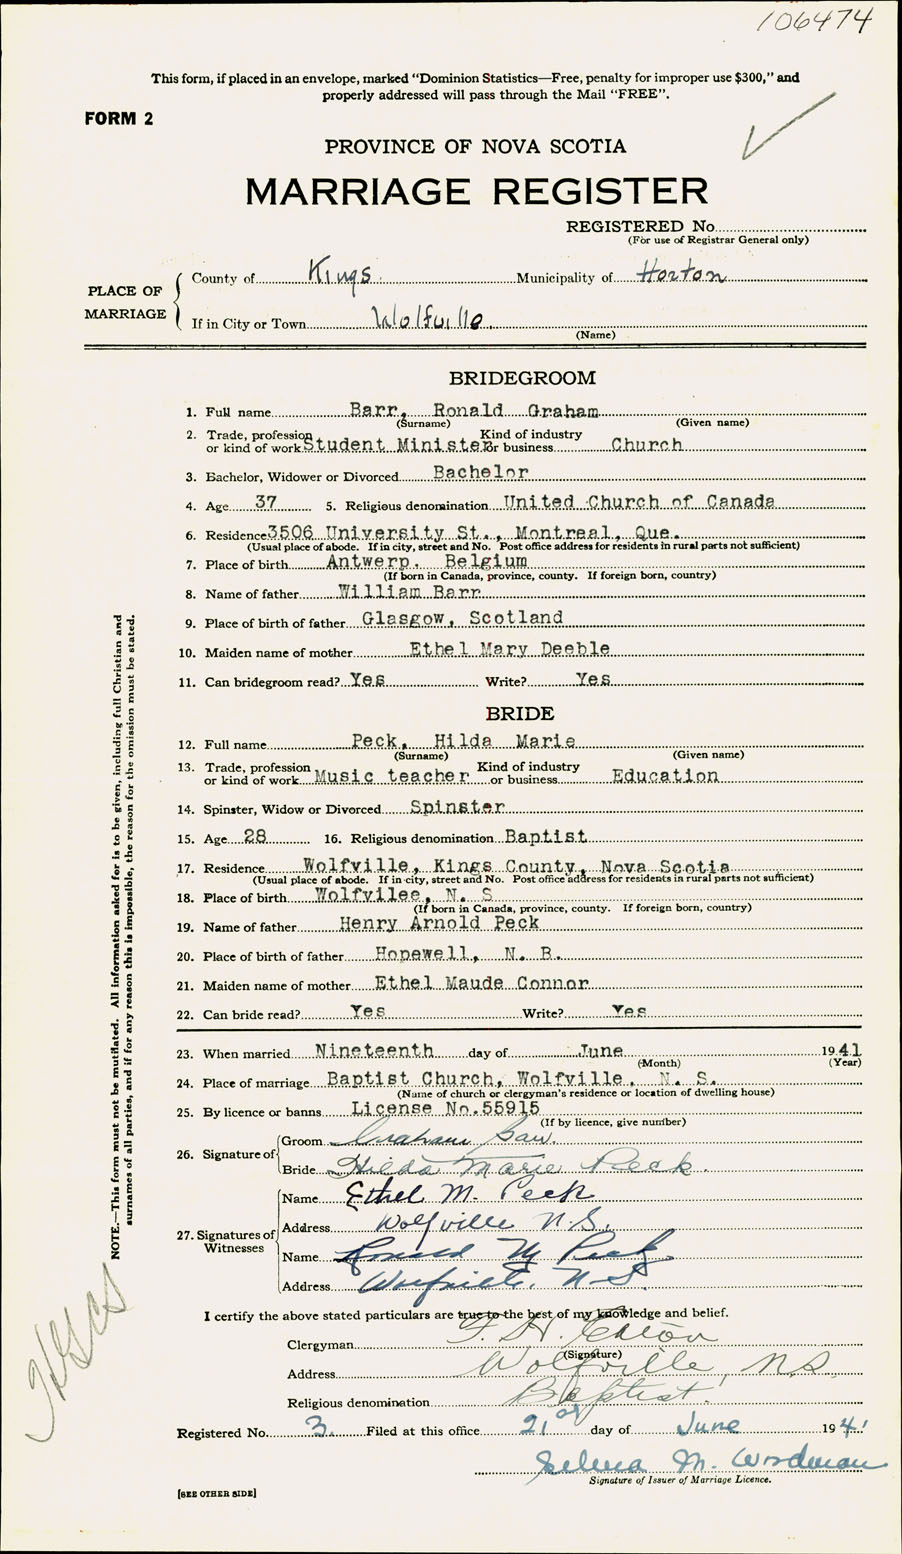 106474
This form, if placed in an envelope, marked "Dominion Statistics—Free, penalty for improper use $300," and
properly addressed will pass through the Mail "FREE".
FORM 2
PROVINCE OF NOVA SCOTIA
MARRIAGE REGISTER
REGISTERED No.
(For use of Registrar General only)
PLACE OF MARRIAGE
County of Kings Municipality of Horton
If in City or Town Wolfville
(Name)
BRIDEGROOM
1. Full name Barr, Ronald Graham
(Surname) (Given name)
2. Trade, profession or kind of work Student Minister Kind of industry or business Church
3. Bachelor, Widower or Divorced Bachelor
4. Age 37 5. Religious denomination United Church of Canada
6. Residence 3506 University St., Montreal, Que.
(Usual place of abode. If in city, street and No. Post office address for residents in rural parts not sufficient)
7. Place of birth Antwerp. Belgium
(If born in Canada, province, county. If foreign born, country)
8. Name of father William Barr
9. Place of birth of father Glasgow, Scotland
10. Maiden name of mother Ethel Mary Deeble
11. Can bridegroom read? Yes Write? Yes
BRIDE
12. Full name Peck, Hilda Marie
(Surname) (Given name)
13. Trade, profession or kind of work Music teacher Kind of industry or business Education
14. Spinster, Widow or Divorced Spinster
15. Age 28 16. Religious denomination Baptist
17. Residence Wolfville, Kings County, Nova Scotia
(Usual place of abode. If in city, street and No. Post office address for residents in rural parts not sufficient)
18. Place of birth Wolfvilee, N. S
(If born in Canada, province, county. If foreign born, country)
19. Name of father Henry Arnold Peck
20. Place of birth of father Hopewell, N. B.
21. Maiden name of mother Ethel Maude Connor
22. Can bride read? Yes Write? Yes
23. When married Nineteenth day of June 1941
(Month) (Year)
24. Place of marriage Baptist Church, Wolfville, N. S.
(Name of church or clergyman's residence or location of dwelling house)
25. By licence or banns License No.55915
(If by licence, give number)
26. Signature of
Groom Graham Barr.
Bride Hilda Marie Peck.
27. Signatures of Witnesses
Name Ethel M. Peck
Address Wolfville N.S.
Name Ronald M Peck
Address Wolfville. N-S.
I certify the above stated particulars are true to the best of my knowledge and belief.
Clergyman F. H. Eaton
(Signature)
Address Wolfville, N.S.
Religious denomination Baptist.
Registered No. 3. Filed at this office 21st day of June 1941
Selena M. Woodman
Signature of Issuer of Marriage Licence.
[SEE OTHER SIDE]
NOTE.—This form must not be mutilated. All information asked for is to be given, including full Christian and
surnames of all parties, and if for any reason this is impossible, the reason for the omission must be stated.